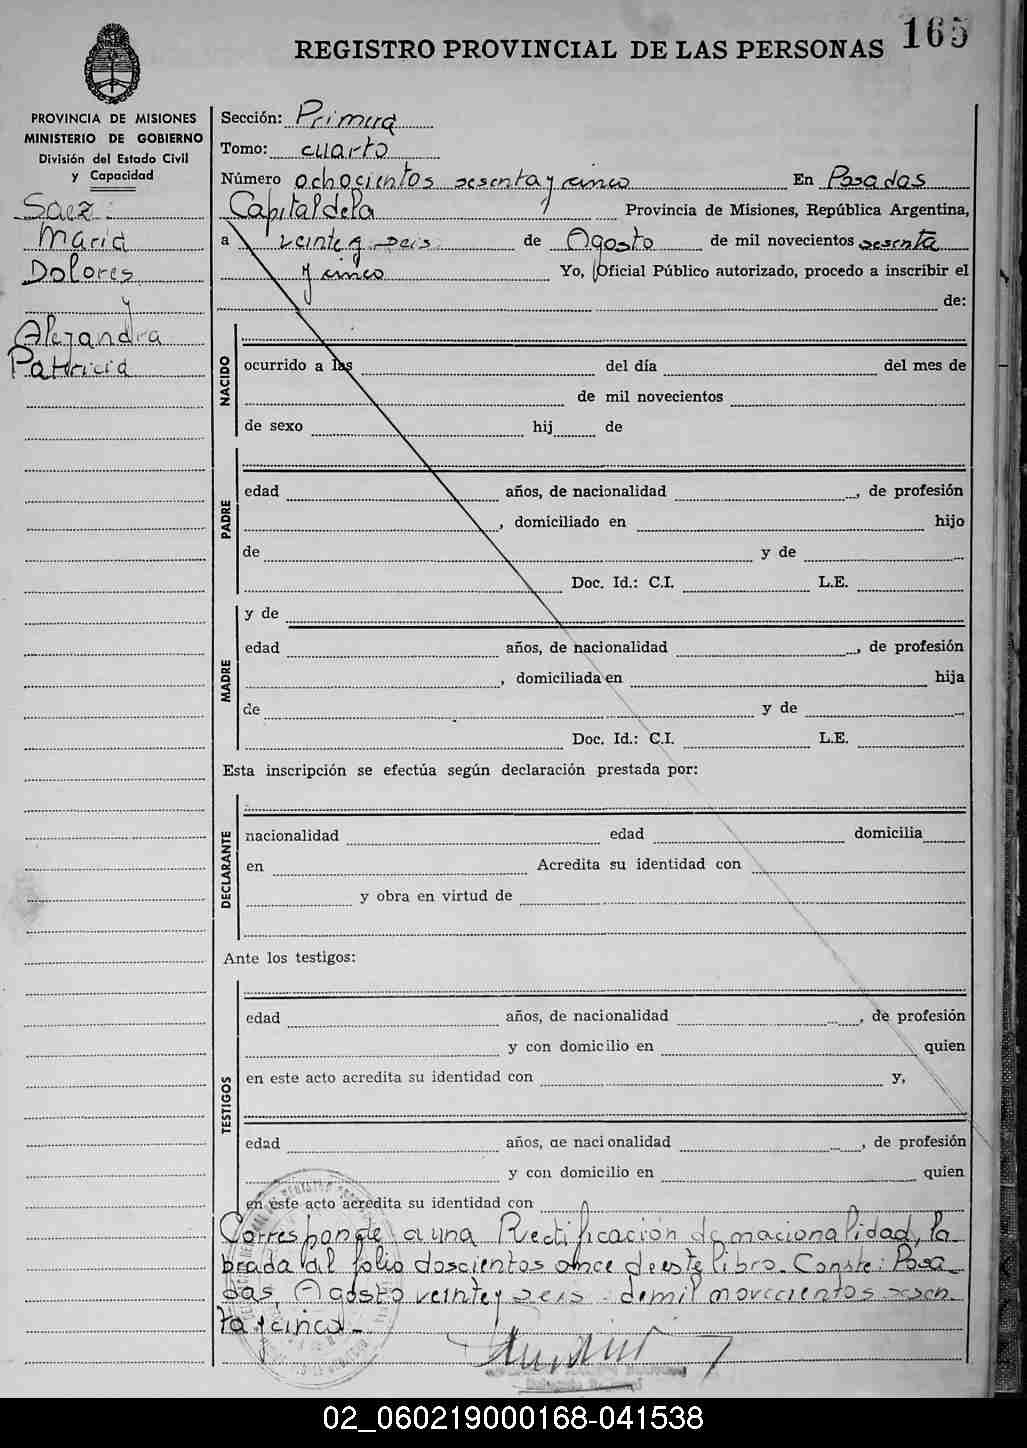 165
REGISTRO PROVINCIAL DE LAS PERSONAS
PROVINCIA DE MISIONES
MINISTERIO DE GOBIERNO
División del Estado Civil
y Capacidad
Saez
Maria
Dolores
y
Alejandra
Patricia
Sección: Primera
Tomo: cuarto
Número ochocientos sesenta y cinco En Posadas
Capital de la Provincia de Misiones, República Argentina,
a veinte y seis de Agosto de mil novecientos sesenta
y cinco Yo, Oficial Público autorizado, procedo a inscribir el
de:
NACIDO
ocurrido a las del día del mes de
de mil novecientos
de sexo hij de
PADRE
edad años, de nacionalidad , de profesión
, domiciliado en hijo
de y de
Doc. Id.: C.I. L.E.
y de
MADRE
edad años, de nacionalidad , de profesión
, domiciliada en hija
de y de
Doc. Id.: C.I. L.E.
Esta inscripción se efectúa según declaración prestada por:
DECLARANTE
nacionalidad edad domicilia
en Acredita su identidad con
y obra en virtud de
Ante los testigos:
TESTIGOS
edad años, de nacionalidad , de profesión
y con domicilio en quien
en este acto acredita su identidad con y,
edad años, de nacionalidad , de profesión
y con domicilio en quien
en este acto acredita su identidad con
Corresponde a una Rectificación de nacionalidad, la
brada al folio doscientos once de este libro. Conste: Posa
das, Agosto veinte y seis de mil novecientos sesen
ta y cinco.
02_060219000168-041538